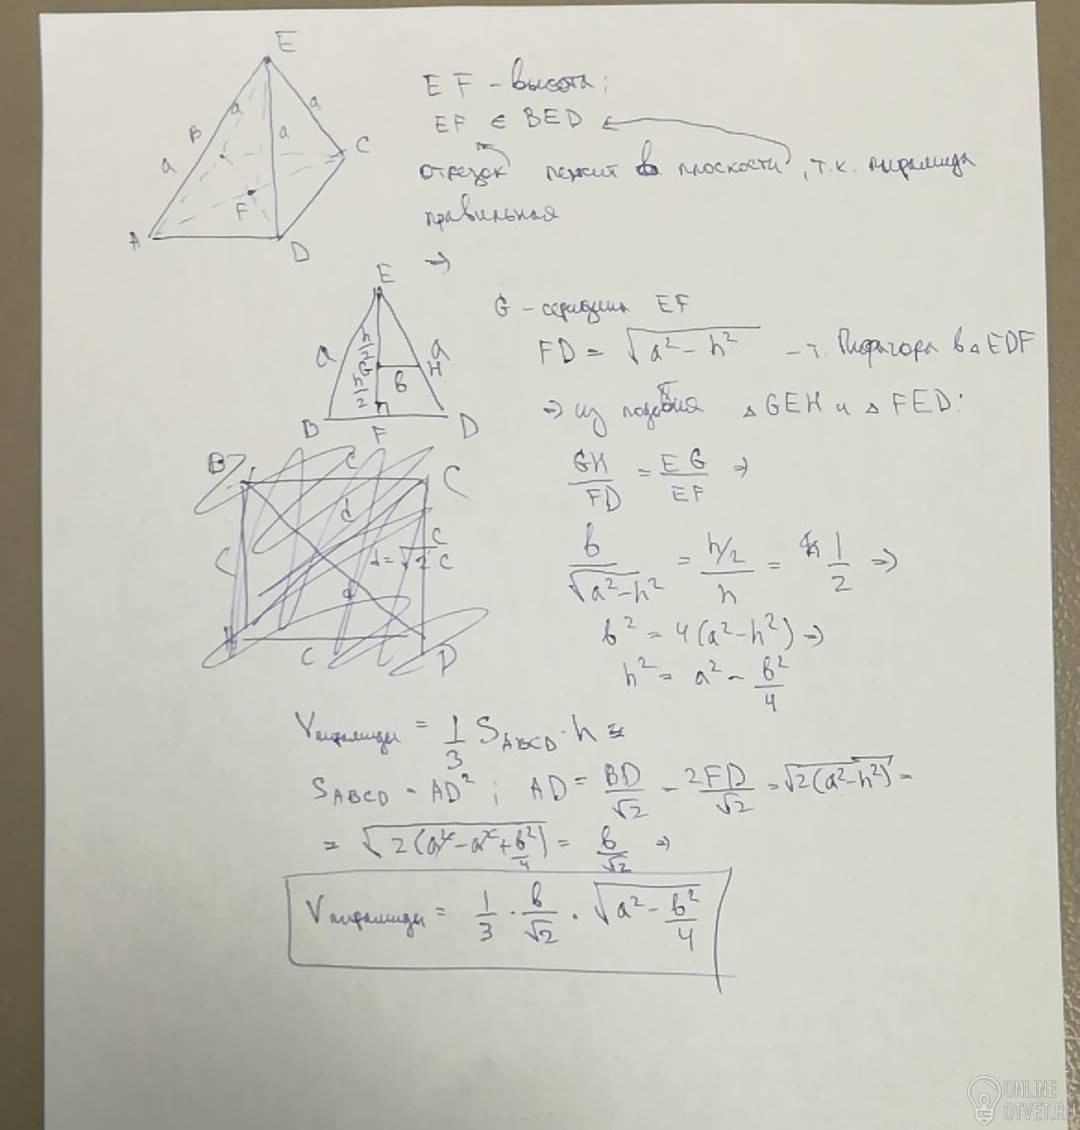 E
B a a
a a C
F
A D
EF – высота;
EF ∈ BED
отрезок лежит в плоскости, т.к. пирамида
правильная
⇒
E
a h/2 a
G H
h/2 b
B F D
G – середина EF
FD = √(a² – h²) – т. Пифагора в △EDF
⇒ из подобия △GEH и △FED:
GH/FD = EG/EF ⇒
b/√(a² – h²) = (h/2)/h = 1/2 ⇒
b² = 4(a² – h²) ⇒
h² = a² – b²/4
B c C
d
c d = √2 c c
d
c D
Vпирамиды = 1/3 S_ABCD · h =
S_ABCD = AD²; AD = BD/√2 = 2FD/√2 = √(2(a² – h²)) =
= √(2(a² – a² + b²/4)) = b/√2 ⇒
Vпирамиды = 1/3 · b/√2 · √(a² – b²/4)
ONLINE
OTVET.RU